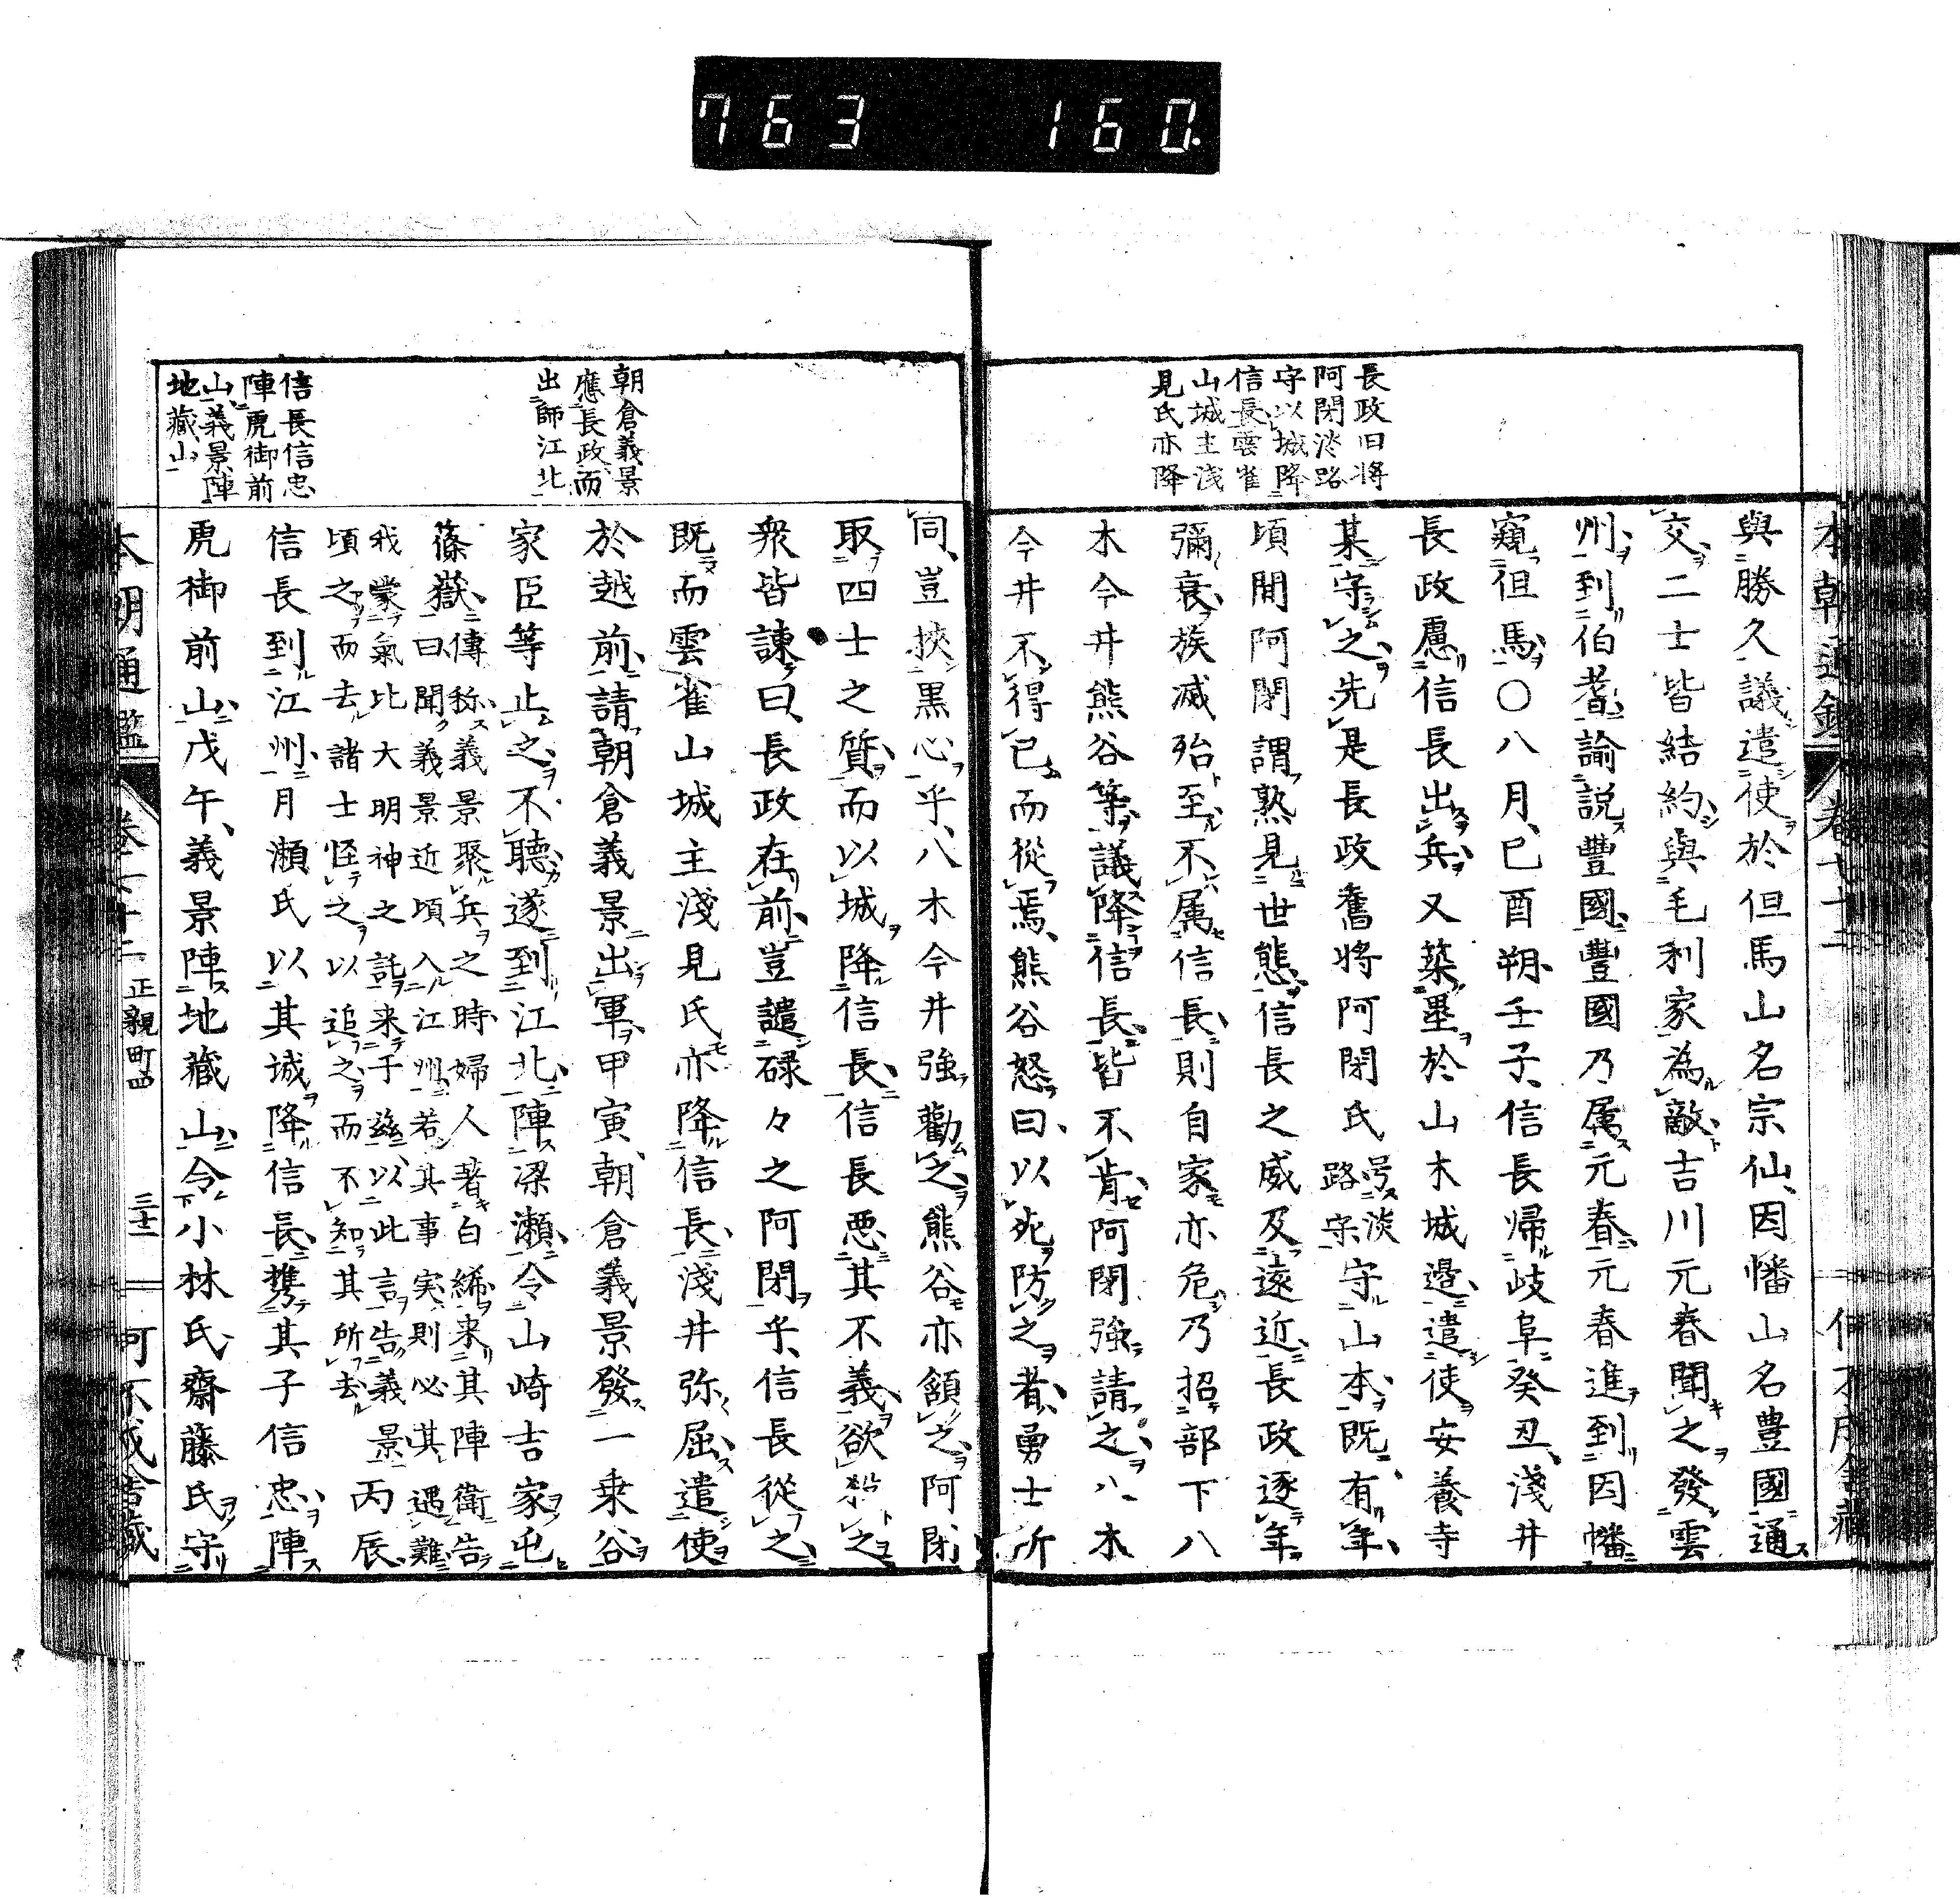 763 160
長政旧将
阿閉淡路
守以城降
信長雲雀
山城主浅
見氏亦降
與勝久議遣使於但馬山名宗仙因幡山名豊國通
交二士皆結約與毛利家為敵吉川元春聞之發雲
州到伯耆諭説豊國豊國乃属元春元春進到因幡
窺徂馬〇八月己酉朔壬子信長帰岐阜癸丑淺井
長政慮信長出兵又築壘於山木城邊遣使安養寺
某守之先是長政舊将阿閉氏号淡路守守山本既有年
頃間阿閉謂熟見世態信長之威及遠近長政逐年
彌衰族滅殆至不属信長則自家亦危乃招部下八
木今井熊谷等議降信長皆不肯阿閉強請之八木
今井不得已而從焉熊谷怒曰以死防之者勇士所
朝倉義景
應長政而
出師江北
信長信忠
陣虎御前
山義景陣
地藏山
同豈挾黒心乎八木今井強勸之熊谷亦領之阿閉
取四士之質而以城降信長信長悪其不義欲殺之
衆皆諌曰長政在前豈譴碌々之阿閉乎信長從之
既而雲雀山城主淺見氏亦降信長淺井弥屈遣使
於越前請朝倉義景出軍甲寅朝倉義景發一乗谷
家臣等止之不聽遂到江北陣梁瀬令山崎吉家屯
篠嶽傳称義景聚兵之時婦人著白絺来其陣衛告
曰聞義景近頃入江州若其事実則必其遇難
我蒙氣比大明神之託来于茲以此言告義景
頃之而去諸士怪之以追之而不知其所去丙辰
信長到江州月瀬氏以其城降信長携其子信忠陣
虎御前山戊午義景陣地藏山令小林氏齋藤氏守
本朝通鑑 卷七十二 正親町四 三十二